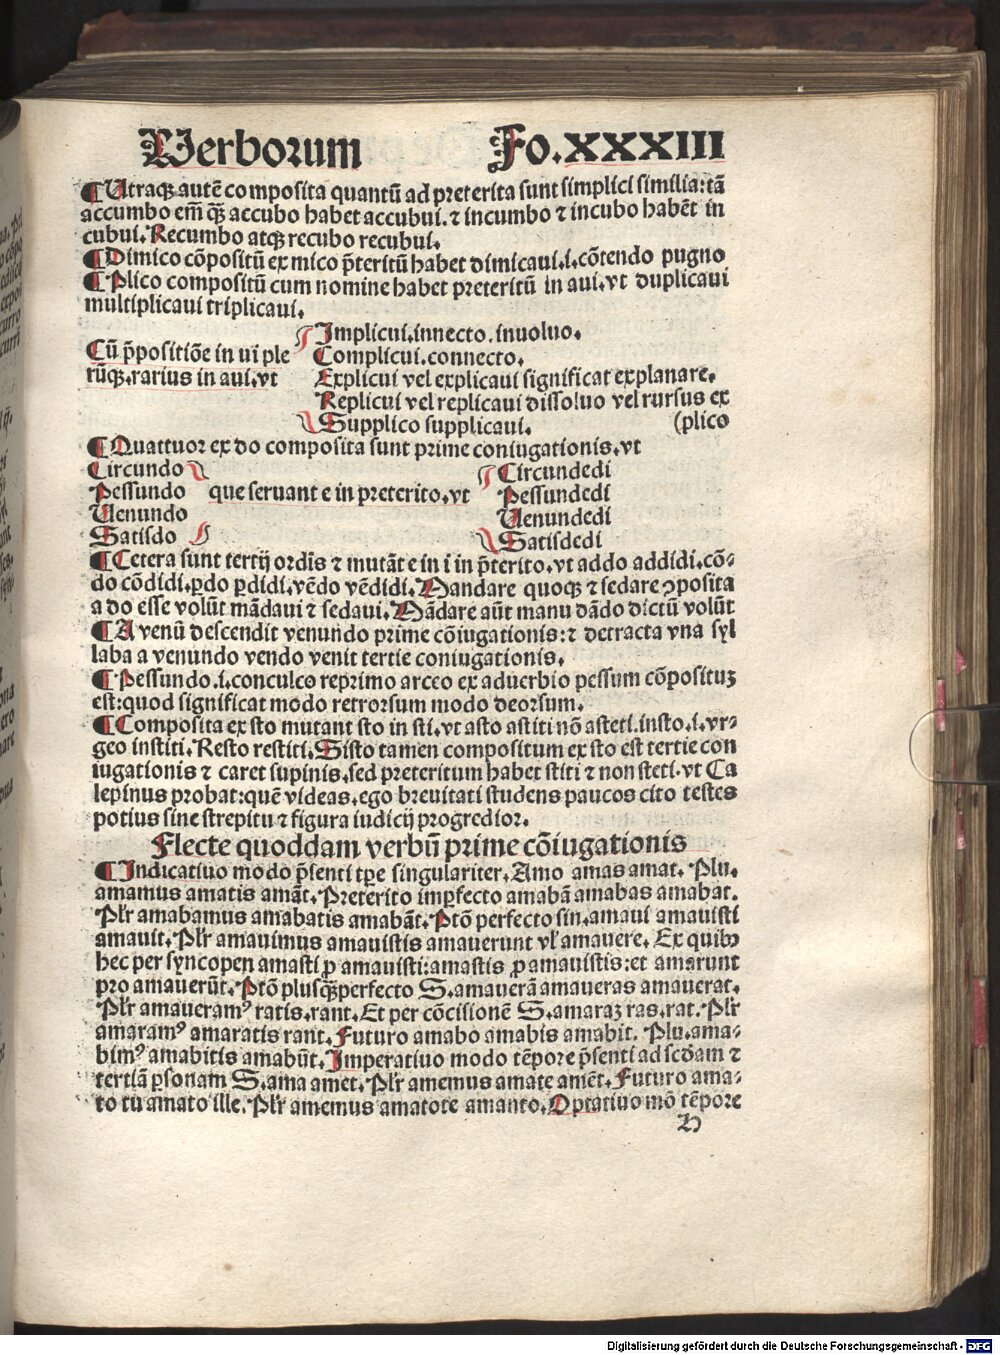 Verborum Fo.XXXIII
¶ Utraqꝫ autē composita quantū ad preterita sunt simplici similia: tā
accumbo em̄ qꝫ accubo habet accubui. ⁊ incumbo ⁊ incubo habēt in
cubui. Recumbo atqꝫ recubo recubui.
¶ Dimico cōpositū ex mico p̄teritū habet dimicaui .i. cōtendo pugno
¶ Plico compositū cum nomine habet preteritū in aui. vt duplicaui
multiplicaui triplicaui.
Implicui. innecto. inuoluo.
Cū p̄positiōe in ui ple Complicui. connecto.
rūqꝫ. rarius in aui. vt Explicui vel explicaui significat explanare.
Replicui vel replicaui dissoluo vel rursus ex
Supplico supplicaui. (plico
¶ Quattuor ex do composita sunt prime coniugationis. vt
Circundo Circundedi
Pessundo que seruant e in preterito. vt Pessundedi
Uenundo Uenundedi
Satisdo Satisdedi
¶ Cetera sunt tertij ordīs ⁊ mutāt e in i in p̄terito. vt addo addidi. cō-
do cōdidi. ꝑdo ꝑdidi. vēdo vēdidi. Mandare quoqꝫ ⁊ sedare ꝯposita
a do esse volūt mādaui ⁊ sedaui. Mādare aūt manu dādo dictū volūt
¶ A venū descendit venundo prime cōiugationis: ⁊ detracta vna syl
laba a venundo vendo venit tertie coniugationis.
¶ Pessundo .i. conculco reprimo arceo ex aduerbio pessum cōposituꝫ
est: quod significat modo retrorsum modo deorsum.
¶ Composita ex sto mutant sto in sti. vt asto astiti nō asteti. insto .i. vr-
geo institi. Resto restiti. Sisto tamen compositum ex sto est tertie con
iugationis ⁊ caret supinis. sed preteritum habet stiti ⁊ non steti. vt Ca
lepinus probat: quē videas. ego breuitati studens paucos cito testes
potius sine strepitu ⁊ figura iudicij progredior.
Flecte quoddam verbū prime cōiugationis
¶ Indicatiuo modo p̄senti tꝑe singulariter. Amo amas amat. Plu.
amamus amatis amāt. Preterito imꝑfecto amabā amabas amabat.
Pl'r amabamus amabatis amabāt. Ptō perfecto sin. amaui amauisti
amauit. Pl'r amauimus amauistis amauerunt vl' amauere. Ex quibꝰ
hec per syncopen amasti ꝓ amauisti: amastis ꝓ amauistis: et amarunt
pro amauerūt. Ptō plusqꝫperfecto S. amauerā amaueras amauerat.
Pl'r amaueramꝰ ratis. rant. Et per cōcisionē S. amaraꝫ ras. rat. Pl'r
amaramꝰ amaratis rant. Futuro amabo amabis amabit. Plu. ama-
bimꝰ amabitis amabūt. Imperatiuo modo tēpore p̄senti ad scd̄am ⁊
tertiā ꝑsonam S. ama amet. Pl'r amemus amate amēt. Futuro ama-
to tu amato ille. Pl'r amemus amatote amanto. Optatiuo mō tēpore
H
Digitalisierung gefördert durch die Deutsche Forschungsgemeinschaft - DFG